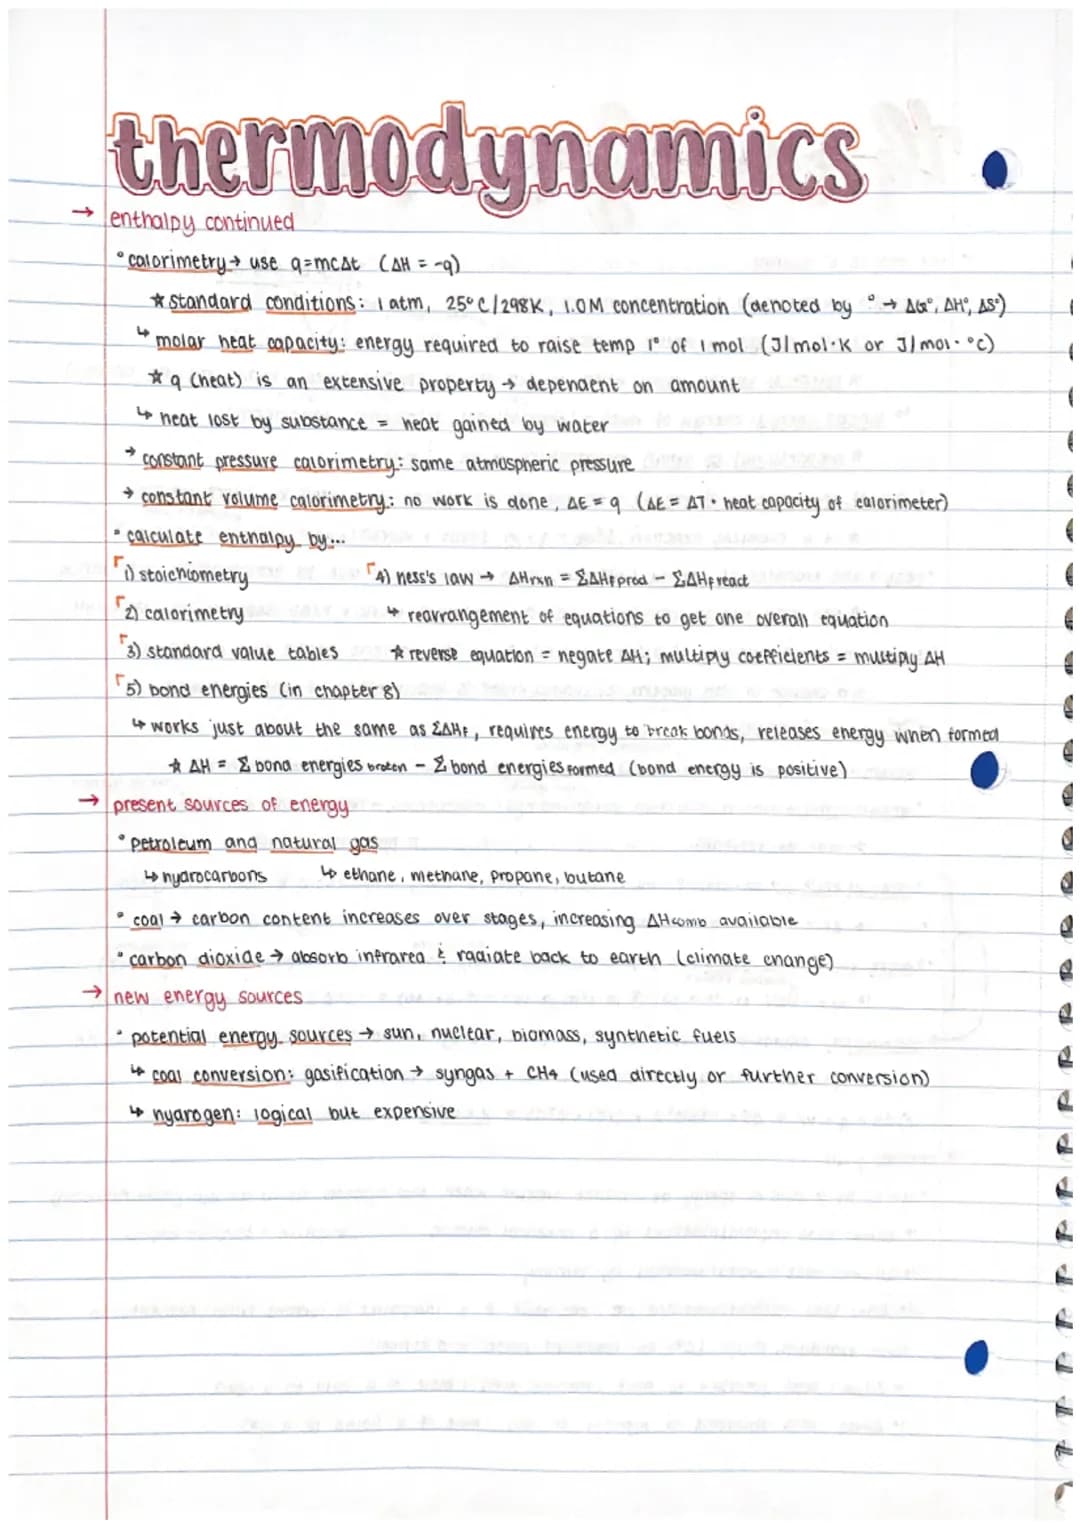 thermodynamics
→ enthalpy continued
° calorimetry → use q=mcΔt (ΔH = -q)
★ standard conditions: 1 atm, 25°C/298K, 1.0M concentration (denoted by ° → ΔG°, ΔH°, ΔS°)
↳ molar heat capacity: energy required to raise temp 1° of 1 mol (J/mol·K or J/mol·°C)
★ q (heat) is an extensive property → dependent on amount
↳ heat lost by substance = heat gained by water
→ constant pressure calorimetry: same atmospheric pressure
→ constant volume calorimetry: no work is done, ΔE = q (ΔE = ΔT · heat capacity of calorimeter)
° calculate enthalpy by...
1) stoichiometry 4) hess's law → ΔHrxn = ΣΔHf prod - ΣΔHf react
2) calorimetry ↳ rearrangement of equations to get one overall equation
3) standard value tables ★ reverse equation = negate ΔH; multiply coefficients = multiply ΔH
5) bond energies (in chapter 8)
↳ works just about the same as ΣΔHf, requires energy to break bonds, releases energy when formed
★ ΔH = Σ bond energies broken - Σ bond energies formed (bond energy is positive)
→ present sources of energy
° petroleum and natural gas
↳ hydrocarbons ↳ ethane, methane, propane, butane
° coal → carbon content increases over stages, increasing ΔHcomb available
° carbon dioxide → absorb infrared & radiate back to earth (climate change)
→ new energy sources
° potential energy sources → sun, nuclear, biomass, synthetic fuels
↳ coal conversion: gasification → syngas + CH4 (used directly or further conversion)
↳ hydrogen: logical but expensive